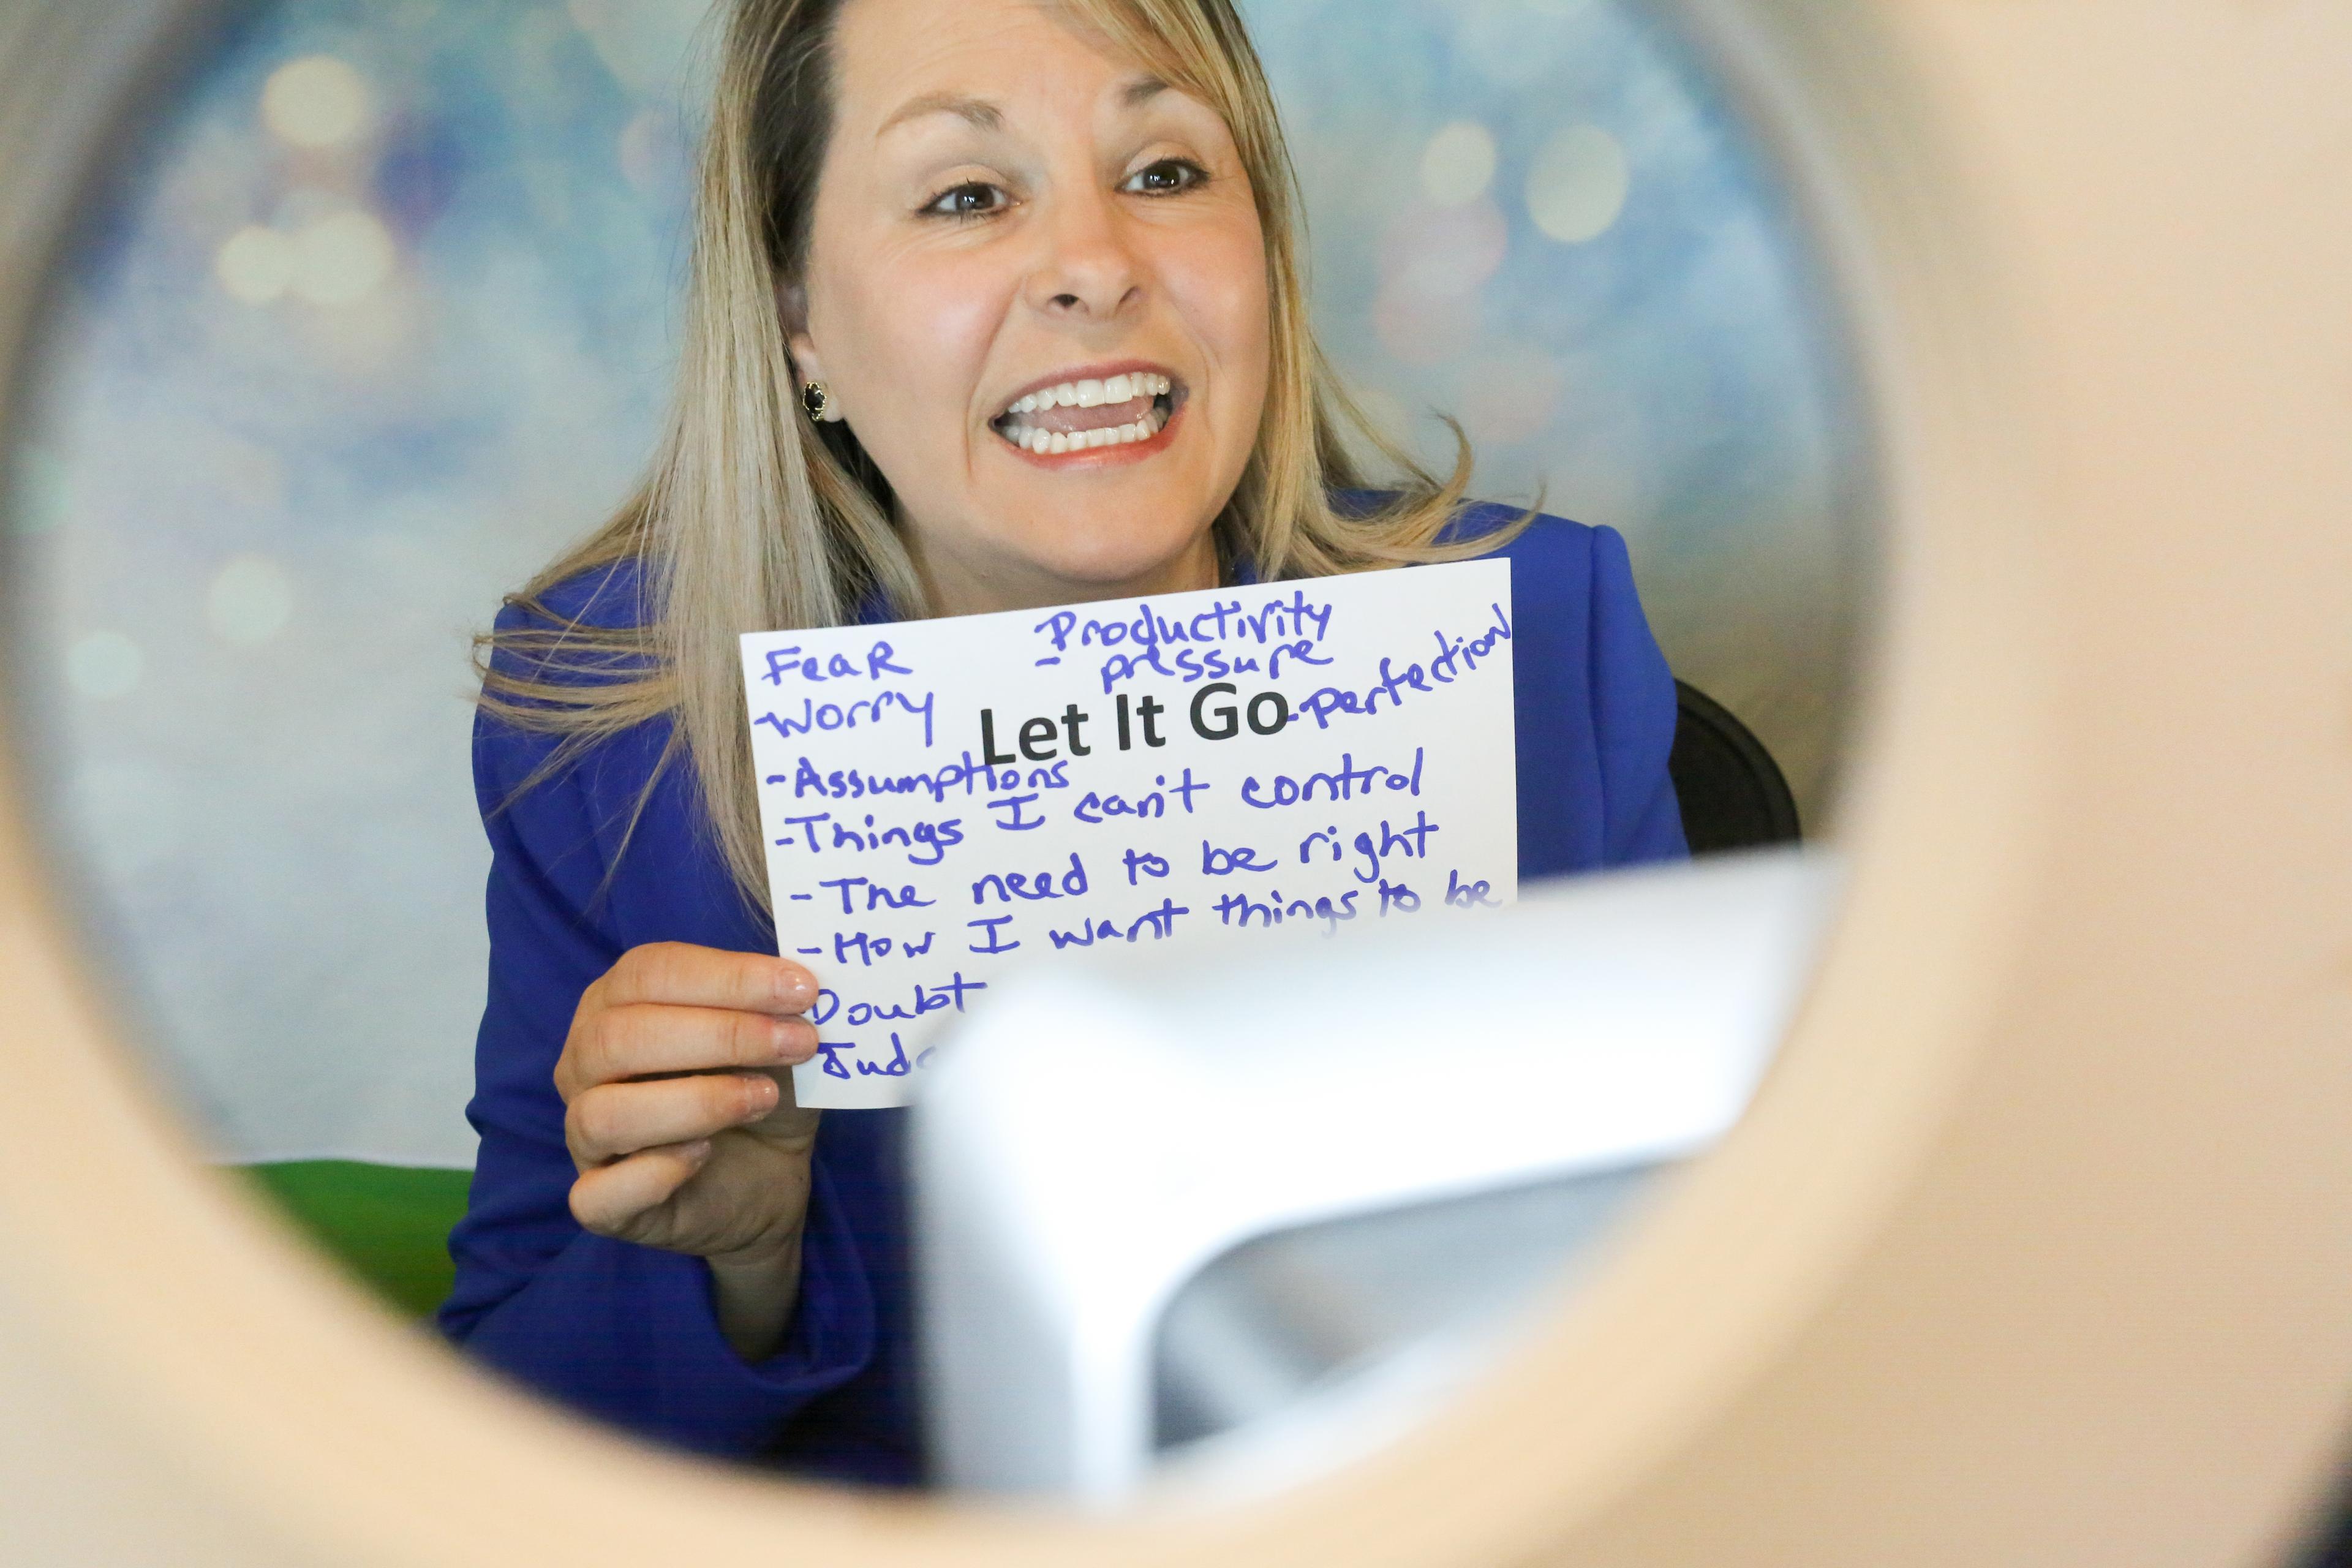 Fear
- Productivity
pressure
- Worry
Let It Go
- perfection
- Assumptions
- Things I can't control
- The need to be right
- How I want things to be
Doubt